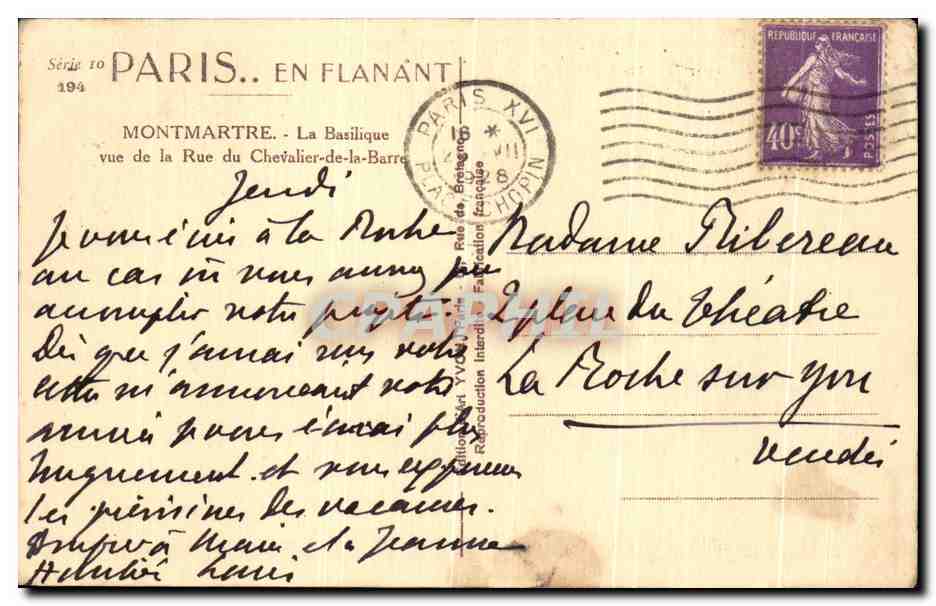 Série 10
194
PARIS.. EN FLANANT
MONTMARTRE. - La Basilique
vue de la Rue du Chevalier-de-la-Barre
PARIS XVI
18 *
VII
1928
PLACE CHOPIN
REPUBLIQUE FRANÇAISE
40c
POSTES
Editions d'Art YVON, Paris - Rue de Bretagne
Reproduction Interdite Fabrication française
CPAPHIL
Jeudi
Je vous écris à la Roche
au cas où vous auriez pu
accomplir votre projet.
Dès que j'aurai reçu votre
lettre m'annonçant votre
arrivée je vous écrirai plus
longuement et vous exposerai
les prévisions des vacances.
à Marie et à Jeanne
Louis
Madame Ribereau
2 place du Théâtre
La Roche sur Yon
Vendée